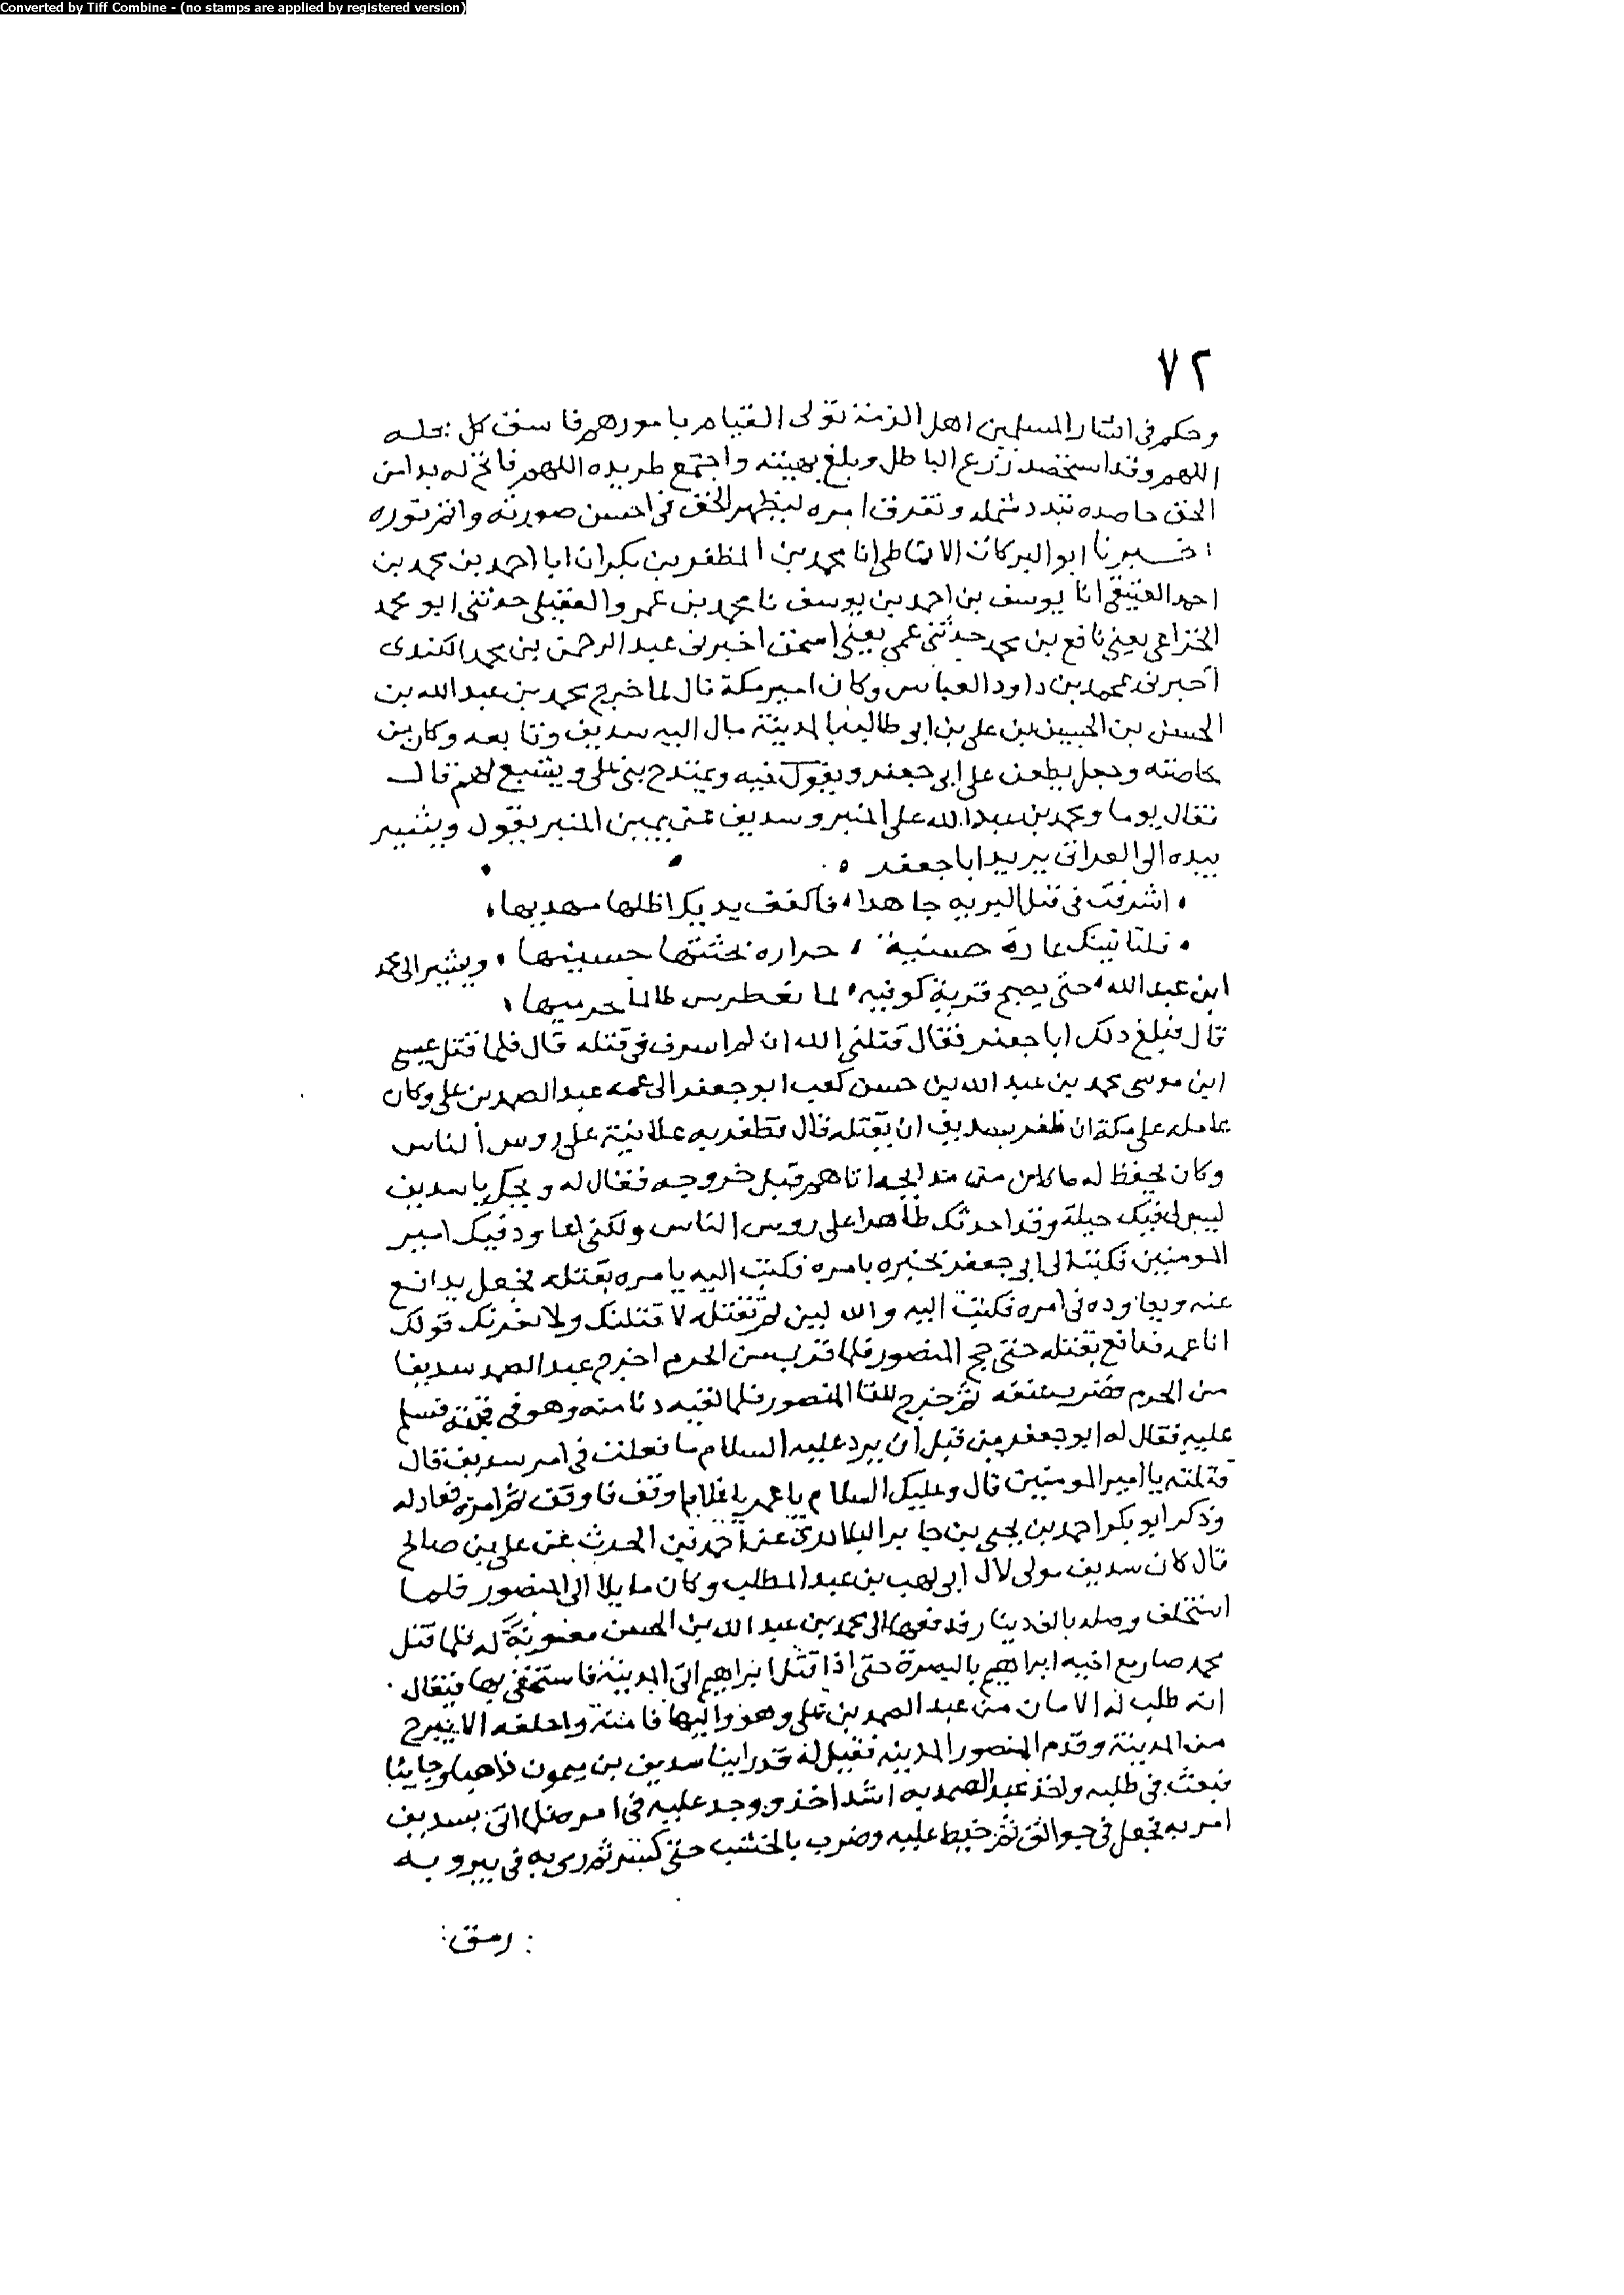 Converted by Tiff Combine - (no stamps are applied by registered version)
٧٢
وحكم في ابشار المسلمين اهل الذمة تولى القيام بامورهم فاسق كل محله
اللهم وقد استحصد زرع الباطل وبلغ نهيته واجتمع طريده اللهم فاتح له يدا من
الحق حاصده تبدد شمله وتفرق امره ليظهر الحق في احسن صورته واتم نوره
اخبرنا ابو البركات الانماطي انا محمد بن المظفر بن بكران ابا احمد بن محمد بن
احمد العتيقي انا يوسف بن احمد بن يوسف نا محمد بن عمرو العقيلي حدثني ابو محمد
الخزاعي يعني نافع بن محمد حدثني عمي يعني اسحق اخبرني عبد الرحمن بن محمد الكندي
اخبرني محمد بن داود العباسي وكان امير مكة قال لما خرج محمد بن عبد الله بن
الحسن بن الحسين بن علي بن ابي طالب بالمدينة مال اليه سديف وتابعه وكان من
خاصته وجعل يطعن على ابي جعفر ويقول فيه ويمتدح بني علي ويتشيع لهم قال
فقال يوما ومحمد بن عبد الله على المنبر وسديف عن يمين المنبر يقول ويشير
بيده الى العراق يريد ابا جعفر
اشرفت في قتل البريه جاهدا فاكفف يديك اظلها مهديها
فلتاتينك غارة حسنية جراره تحتثها حسنيها ويشير الى محمد
ابن عبد الله حتى يصبح قرية كوفيه لما تغطرس ظالما حرميها
قال فبلغ ذلك ابا جعفر فقال قتلني الله ان لم اسرف في قتله قال فلما قتل عيسى
ابن موسى محمد بن عبد الله بن حسن كتب ابو جعفر الى عمه عبد الصمد بن علي وكان
عامله على مكة ان ظفر بسديف ان يقتله قال فظفر به علانية على روس الناس
وكان يحفظ له ما كان من مدايحه اياهم قبل خروجه فقال له ويحك يا سديف
ليس لي فيك حيلة وقد اخذتك ظاهرا على رويس الناس ولكني اعاود فيك امير
المومنين فكتب الى ابي جعفر يخبره بامره فكتب اليه يامره بقتله فجعل يدافع
عنه ويعاوده في امره فكتب اليه والله لين لم تقتله لاقتلنك ولا يغرنك قولك
انا عمه فدافع بقتله حتى حج المنصور فلما قرب من الحرم اخرج عبد الصمد سديفا
من الحرم فضرب عنقه ثم خرج للقا المنصور فلما لقيه دنا منه وهو في قبته فسلم
عليه فقال له ابو جعفر من قبل ان يرد عليه السلام ما فعلت في امر سديف قال
قتلته يا امير المومنين قال وعليك السلام يا عم يا غلام اوقف فاوقف ثم امره فعادله
وذكر ابو بكر احمد بن يحيى بن جابر البلاذري عن احمد بن الحرث عن علي بن صالح
قال كان سديف مولى لال ابي لهب بن عبد المطلب وكان مايلا الى المنصور فلما
استخلف وصله بالف دينار فدفعها الى محمد بن عبد الله بن الحسن معونة له فلما قتل
محمد صار مع اخيه ابراهيم بالبصرة حتى اذا قتل ابراهيم اتى المدينة فاستخفى بها فيقال
انه طلب له الامان من عبد الصمد بن علي وهو واليها فامنه واحلفه الا يبرح
من المدينة وقدم المنصور المدينه فقيل له قد راينا سديف بن ميمون ذاهبا وجايئا
فبعث في طلبه واخذ عبد الصمد به اشد اخذ ووجد عليه في امره فلما اتى بسديف
امر به فجعل في جوالق ثم خيط عليه وضرب بالخشب حتى كسر ثم رمى به في بير وبه
رمق